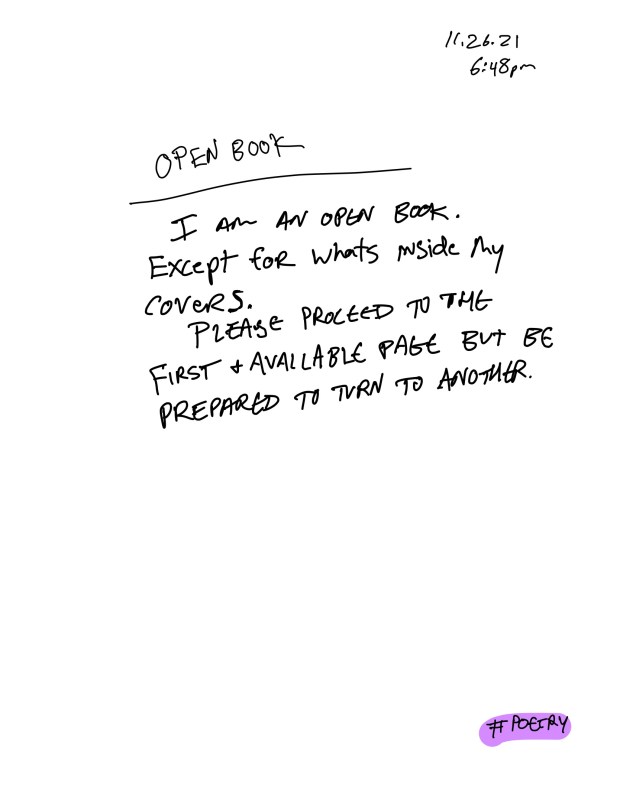 11.26.21
6:48pm
OPEN BOOK
I AM AN OPEN BOOK.
Except for whats inside My
COVERS.
PLEASE PROCEED TO THE
FIRST + AVAILABLE PAGE BUT BE
PREPARED TO TURN TO ANOTHER.
#POETRY